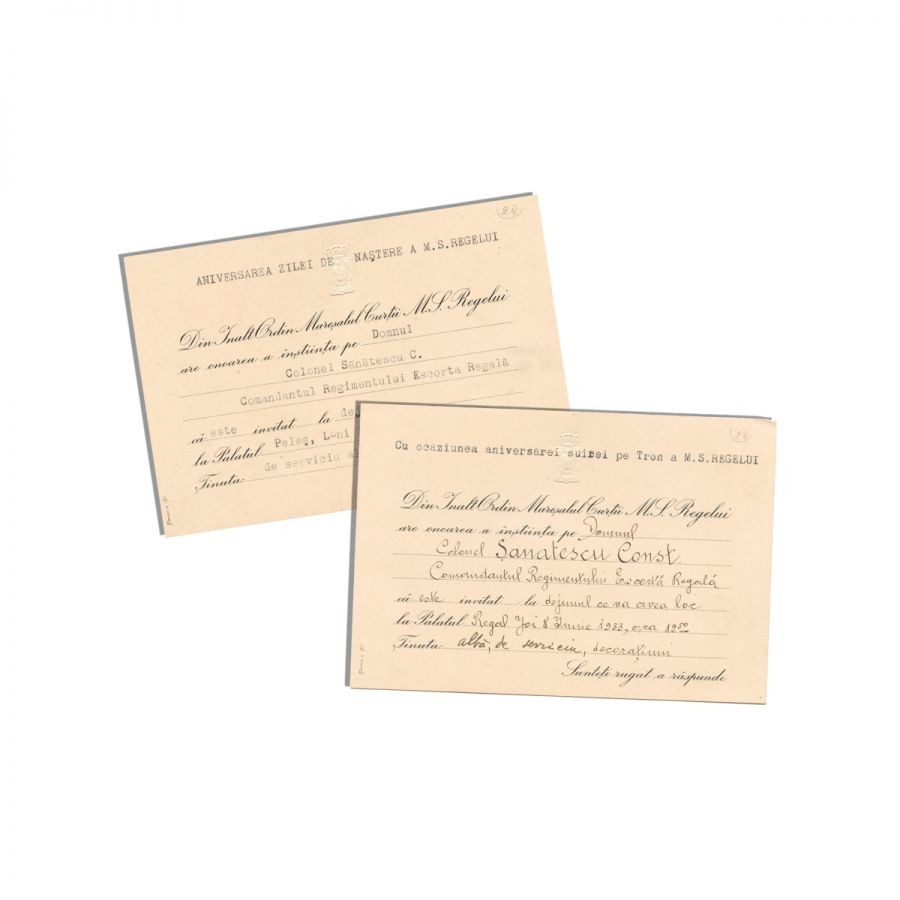 28
ANIVERSAREA ZILEI DE NAŞTERE A M.S.REGELUI
Din Inalt Ordin Mareşalul Curţii M.S. Regelui
are onoarea a înştiinţa pe Domnul
Colonel Sănătescu C.
Comandantul Regimentului Escorta Regală
că este invitat la
la Palatul Peleş, Luni
de serviciu
Ţinuta:
28
Cu ocaziunea aniversarei suirei pe Tron a M.S.REGELUI
Din Inalt Ordin Mareşalul Curţii M.S. Regelui
are onoarea a înştiinţa pe Domnul
Colonel Şanatescu Const
Comandantul Regimentului Escortă Regală
că este invitat la dejunul ce va avea loc
la Palatul Regal Joi 8 Iunie 1933, ora 12⁵⁰
Ţinuta: albă, de serviciu, decoraţiuni
Sunteţi rugat a răspunde